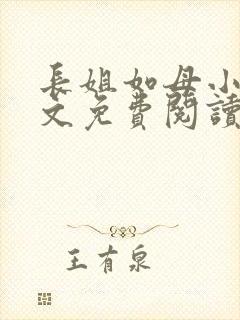 長姐如母小
文免費閱讀
王有泉